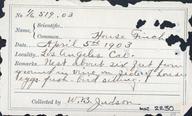 No. 2/519.03
Name, Scientific,
Common, House Finch
Date, April 5th 1903
Locality, Los Angeles Cal.
Remarks, Nest about six feet from
ground in vine on side of house
eggs fresh. bird setting.
Collected by W.B. Judson